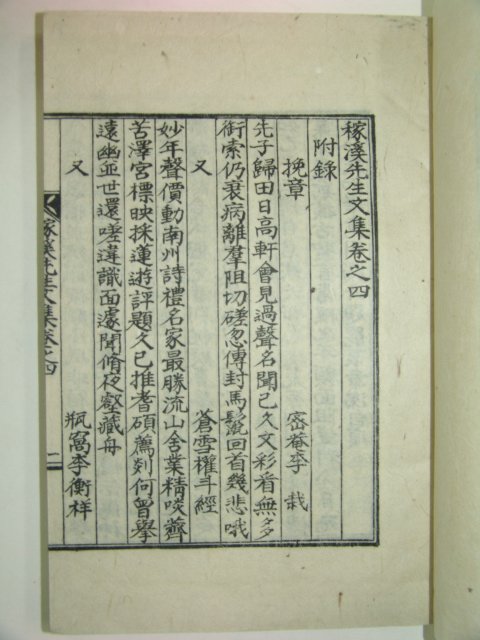 稼溪先生文集卷之四
附錄
挽章 密菴李 栽
先子歸田日高軒會見過聲名聞已久文彩看無多
銜索仍衰病離羣阻切磋忽傳封馬鬣回首幾悲哦
又 蒼雪權斗經
妙年聲價動南州詩禮名家最勝流山舍業精啖薺
苦澤宮標映採蓮遊評題久已推耆碩薦剡何曾擧
遠幽並世還嗟違識面遽聞脩夜壑藏舟
又 瓶窩李衡祥
稼溪先生文集卷之四 一